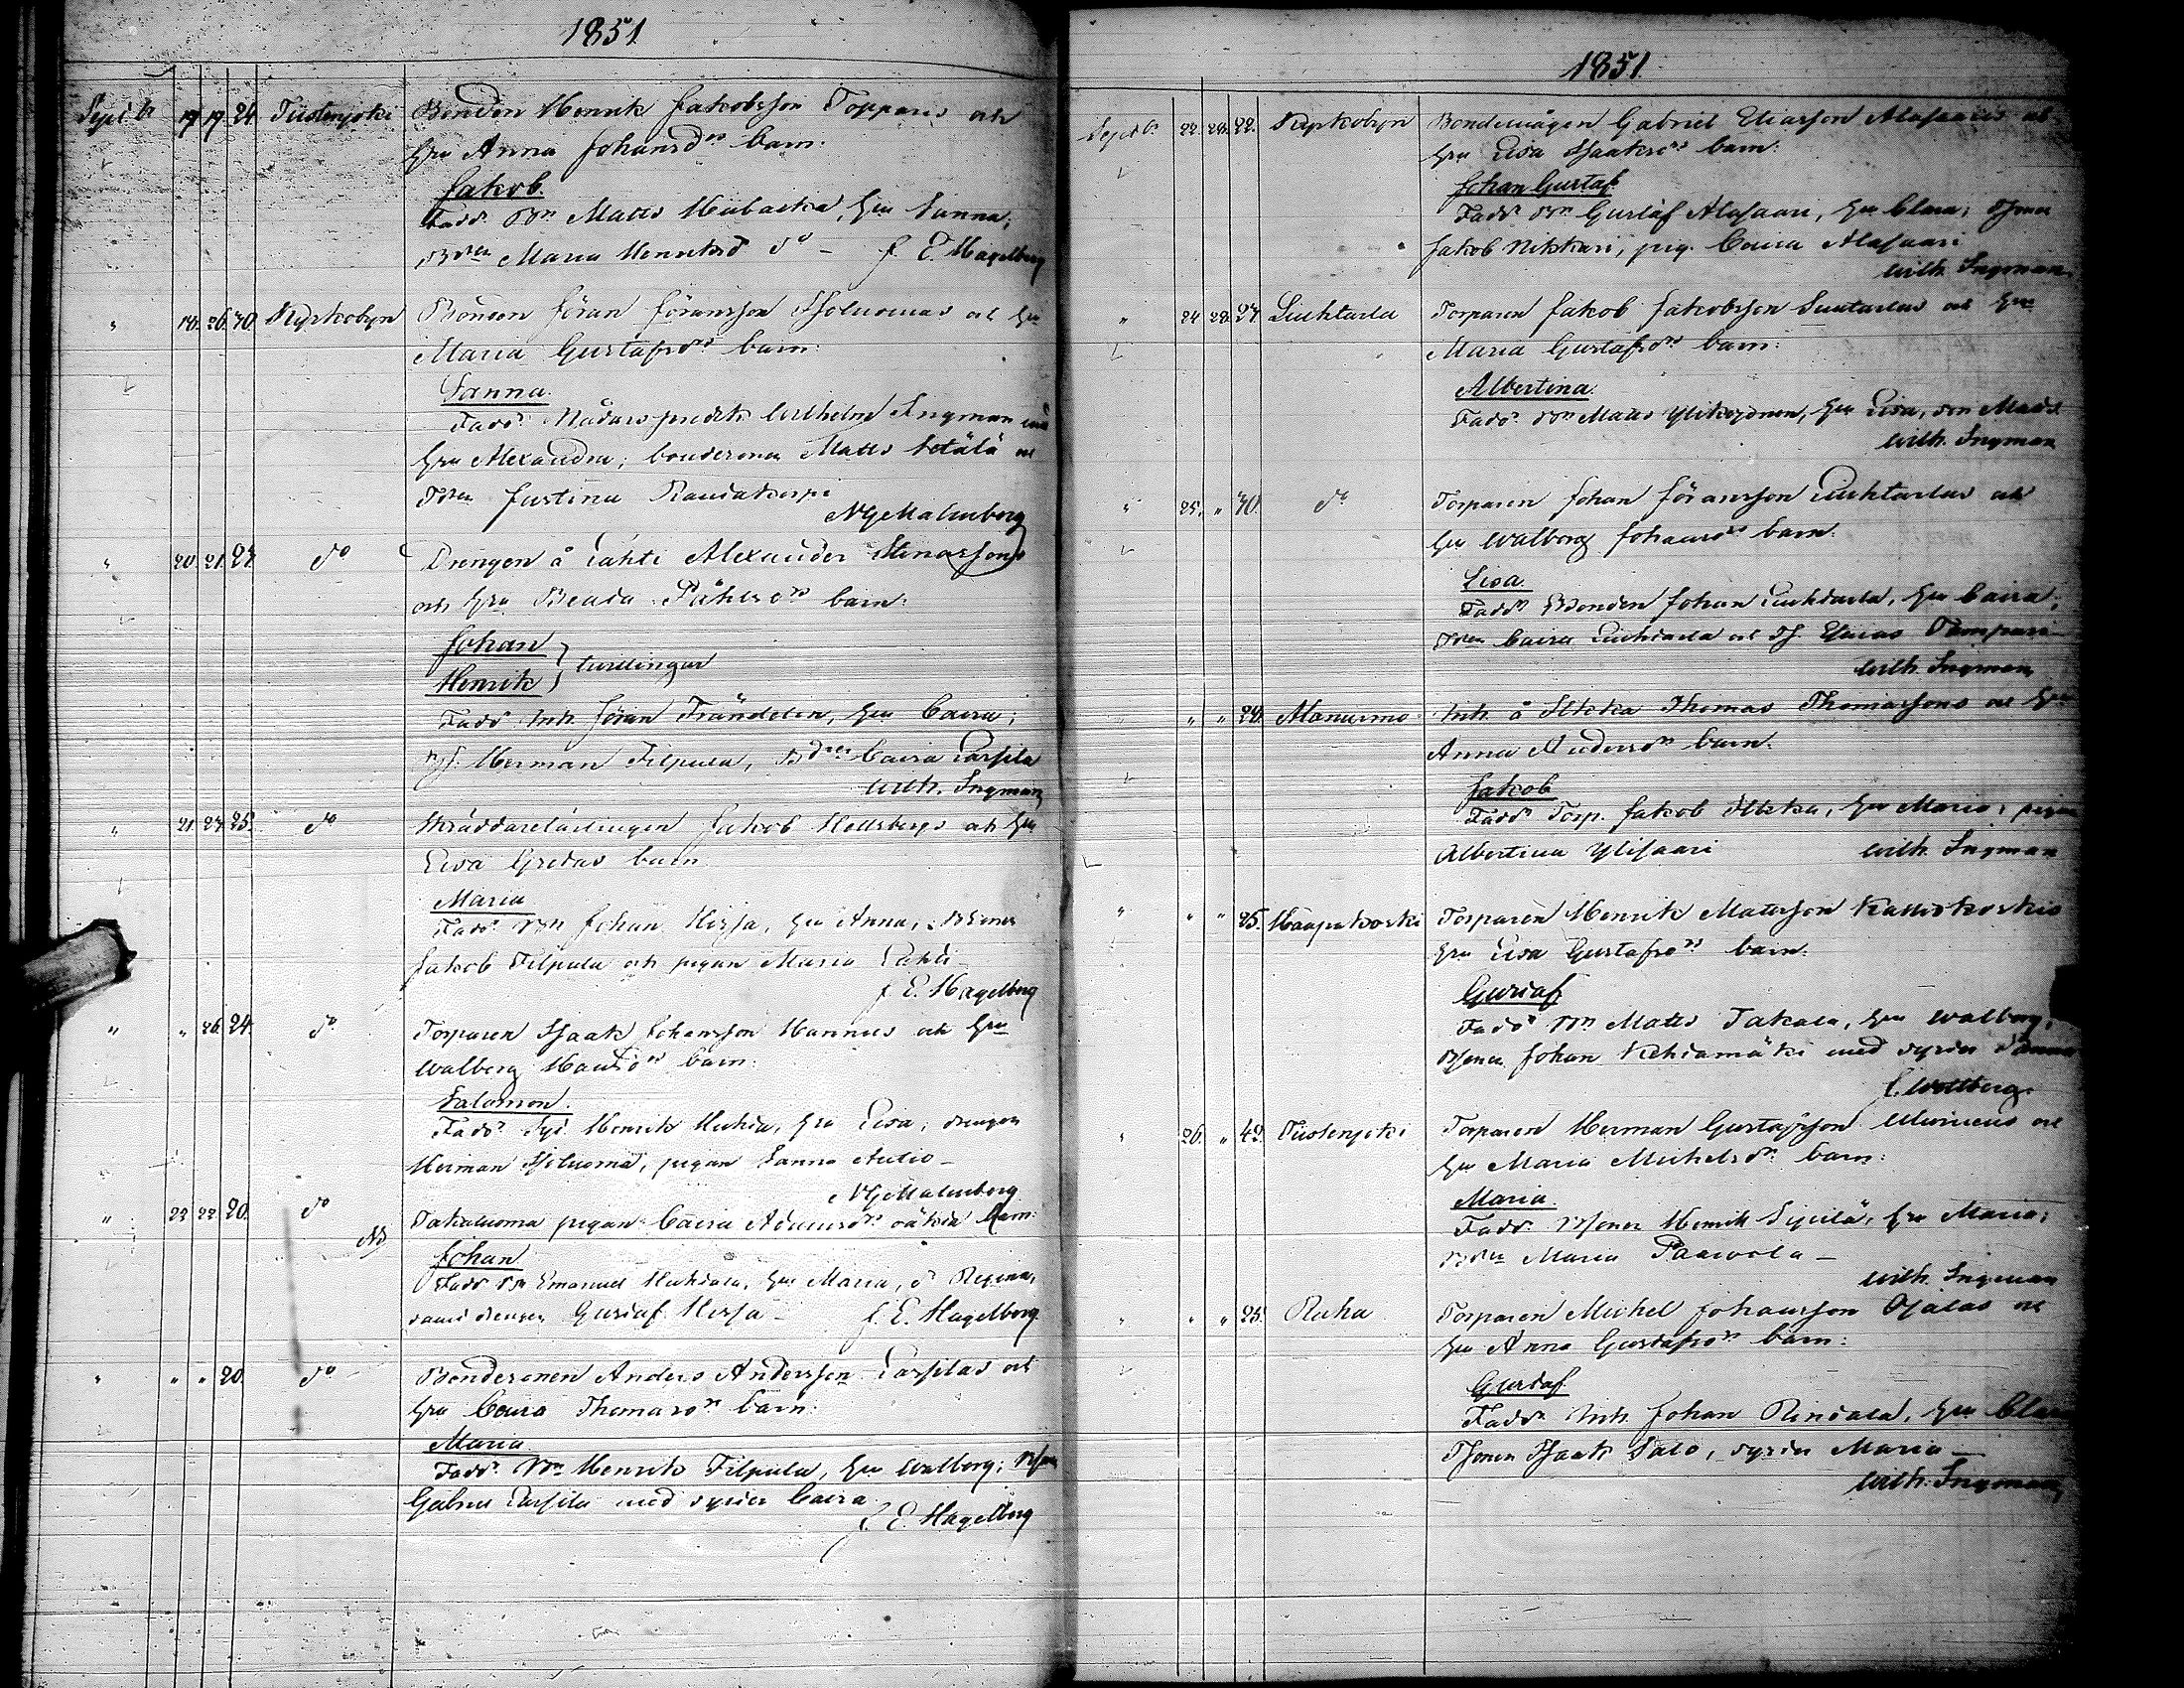 1851
Septbr 17 17 24 Tiistenjoki Bonden Henrik Jakobsson Topparis och
hru Anna Johansdrs barn:
Jakob.
Fadd. Bn Matts hru Sanna,
Maria Henriksd do – J. E. Hagelberg
" 18. 26. 30. Kyrkobyn Bonden Jöran Jöransson Isoluomas och hru
Maria Gustafsdrs barn:
Sanna.
Fadd. Nådårs predik. Wilhelm Ingman och
hru Alexandra; bondesonen Matts Setälä och
Justina
NGMalmberg
" 20. 21. 27 do Drengen å Lahti Alexander Stenarssons
och hru Beata barn:
Johan
Henrik } tvillingar
Fadd. Inh. Jöran Trändelin, hru Caisa;
Herman Filpula, Caisa Passila
Wilh. Ingman
" 21. 27. 25. do Skräddarelärlingen Jakob Hellbergs och hru
Lisa Gretas barn
Maria
Fadd. Bn Johan Hirja, hru Anna, Bsonen
Jakob Filpula och pigan Maria Lahti –
J. E. Hagelberg
" " 26. 24. do Torparen Isaak Johansson Hannus och hru
Walborg barn:
Salomon.
Fadd. Henrik hru Lisa; drengen
Herman Isoluoma, pigan Sanna Autio –
NGMalmberg
" 22 22. 20. do Takaluoma pigan Caisa Adamsdrs oäkta barn:
NB Johan
Fadd Bn Emanuel Huhtala, hru Maria, dr Regina,
samt drengen Gustaf Hirja – J. E. Hagelberg.
" " " 20. do Bondesonen Anders Andersson Passilas och
hru Caisa Thomasdrs barn:
Maria
Fadd. Bn Henrik Filpula, hru Walborg; Bson
Gabriel Passila med syster Caisa
J. E. Hagelberg
1851.
Septbr. 22. 28. 22. Kyrkobyn Bondemågen Gabriel Eliasson Alasaaris och
hru Lisa Isaaksdrs barn:
Johan Gustaf
Fadd. Bn Gustaf Alasaari, hru Clara; Tsonen
Jakob Nikkari, pig. Caisa Alasaari
Wilh. Ingman.
" 24 28. 27. Luhtaila Torparen Jakob Jakobsson och hru
Maria Gustafsdrs barn:
Albertina.
Fadd. Bn Matts hru Lisa, son Mads.
Wilh. Ingman
" 25. " 30. do Torparen Johan Jöransson och
hru Walborg Johansdrs barn.
Lisa.
Fadd. Bonden Johan hru Caisa;
Caisa och
Wilh. Ingman
" " 28. Alanurmo Inh. å Ilkka Thomas Thomassons och hru
Anna Andersdrs barn.
Jakob
Fadd. Torp. Jakob Ilkka, hru Maria; pigan
Albertina Ylisaari Wilh. Ingman
" " " 25. Haapakoski Torparen Henrik Matsson Kalliokoskis
hru Lisa Gustafsdrs barn:
Gustaf
Fadd. Bn Matts Takala, hru Walborg,
Bsonen Johan med syster Sanna
Wallberg.
" 26. " 42. Tiistenjoki Torparen Herman Gustafsson och
hru Maria Michelsdrs barn:
Maria.
Fadd. Bsonen Henrik hru Maria;
Maria Paavola –
Wilh. Ingman
" " " 25. Ruha Torparen Michel Johansson Ojalas och
hru Anna Gustafsdrs barn:
Gustaf
Fadd. Inh. Johan Rintala, hru Clara
Tsonen Isaak Salo, syster Maria –
Wilh. Ingman